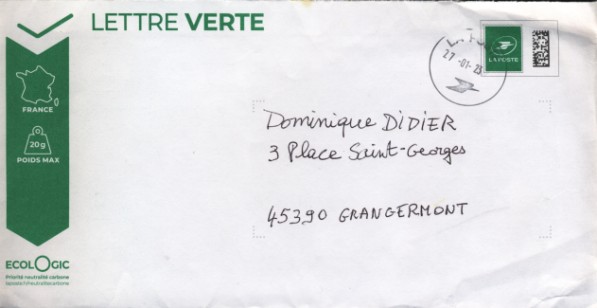 LETTRE VERTE
LA POSTE
27-01-23
LA POSTE
FRANCE
20g
POIDS MAX
Dominique DIDIER
3 Place Saint-Georges
45390 GRANGERMONT
ECOLOGIC
Priorité neutralité carbone
laposte.fr/neutralitecarbone